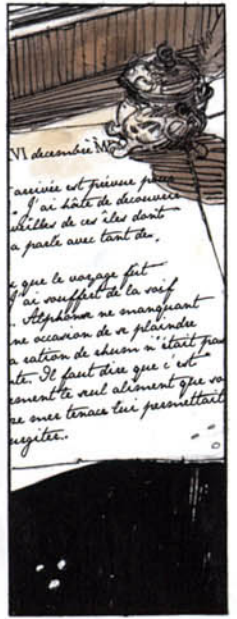 VI decembre M
arrivée est prévue pour
J'ai hâte de découvrir
veilles de ces îles dont
a parle avec tant de.
que le voyage fût
J'ai souffert de la soif
Alphonse ne manquant
ne occasion de se plaindre
a ration de rhum n'était pas
te. Il faut dire que c'est
ement le seul aliment que so
de mer tenace lui permettait
urgiter.